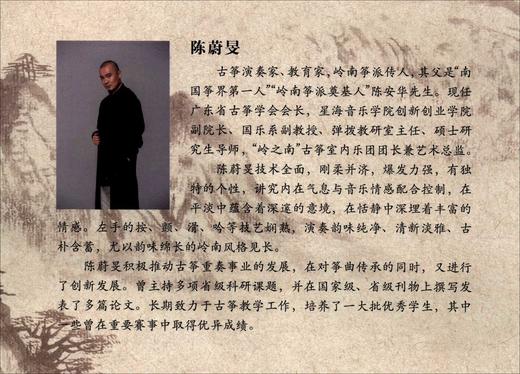 陈蔚旻
古筝演奏家、教育家，岭南筝派传人，其父是“南
国筝界第一人”“岭南筝派奠基人”陈安华先生。现任
广东省古筝学会会长，星海音乐学院创新创业学院
副院长、国乐系副教授、弹拨教研室主任、硕士研
究生导师，“岭之南”古筝室内乐团团长兼艺术总监。
陈蔚旻技术全面，刚柔并济，爆发力强，有
独特的个性，讲究内在气息与音乐情感配合控制，在
平淡中蕴含着深邃的意境，在恬静中深埋着丰富的
情感。左手的按、颤、滑、吟等技艺娴熟，演奏韵味纯净、清新淡雅、古
朴含蓄，尤以韵味绵长的岭南风格见长。
陈蔚旻积极推动古筝重奏事业的发展，在对筝曲传承的同时，又进行
了创新发展。曾主持多项省级科研课题，并在国家级、省级刊物上撰写发
表了多篇论文。长期致力于古筝教学工作，培养了一大批优秀学生，其中
一些曾在重要赛事中取得优异成绩。